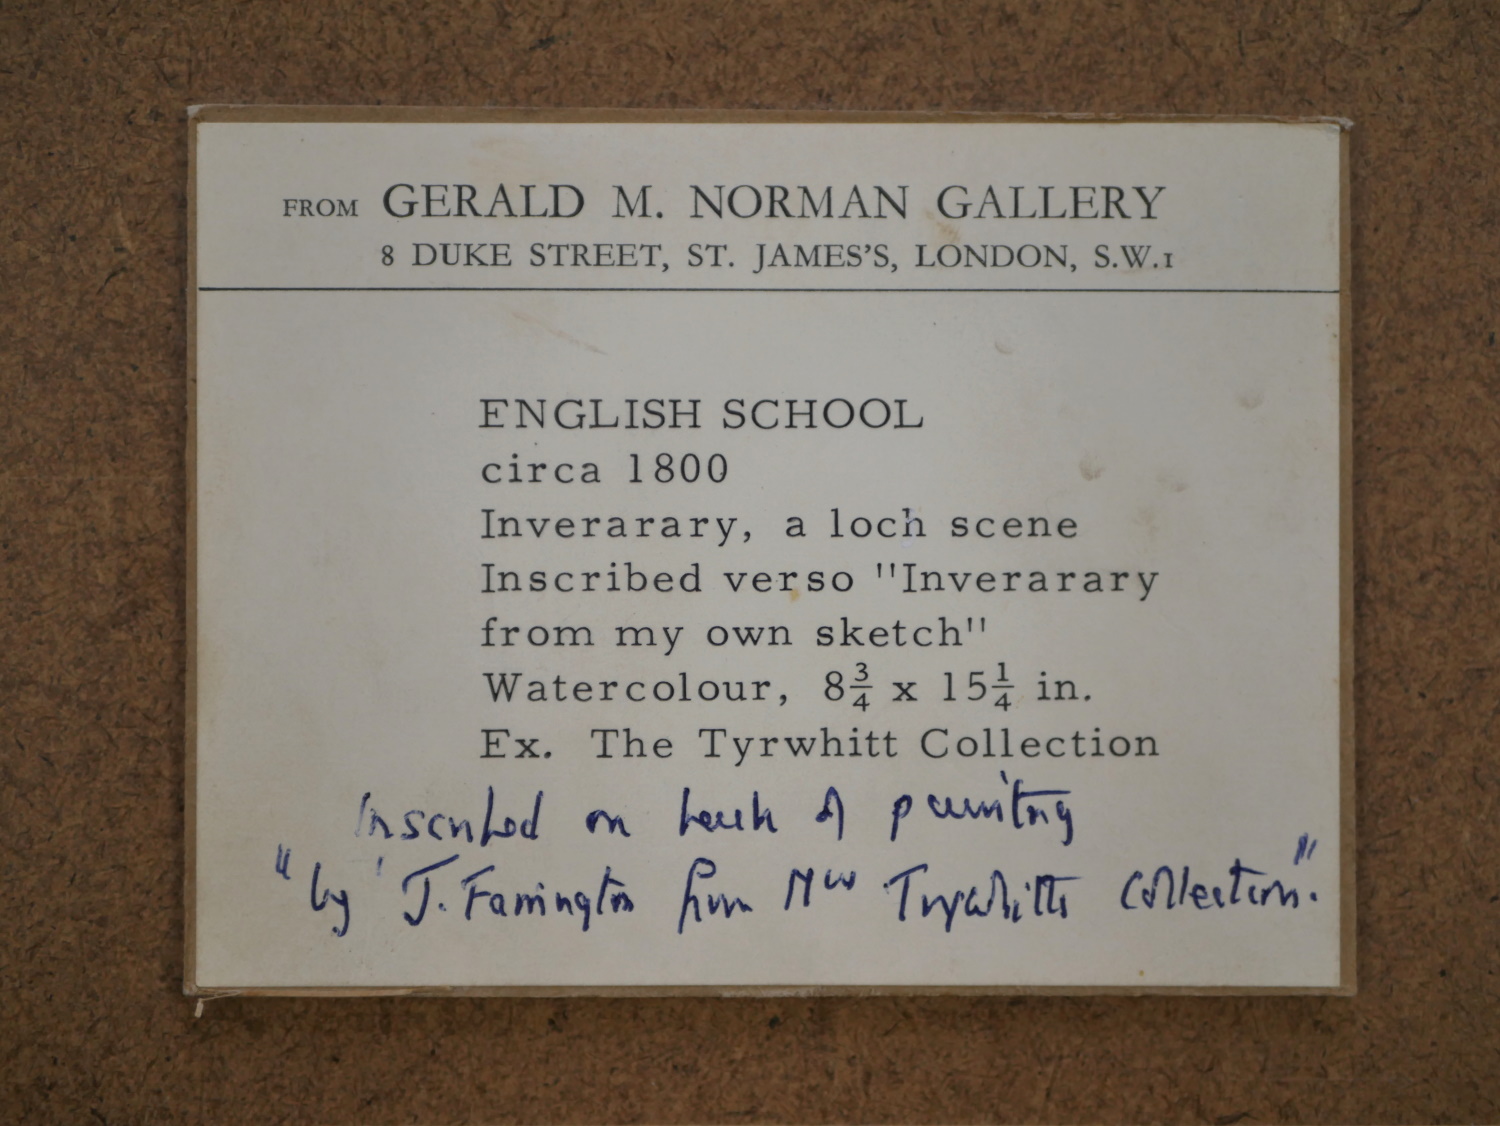 FROM GERALD M. NORMAN GALLERY
8 DUKE STREET, ST. JAMES'S, LONDON, S.W.1
ENGLISH SCHOOL
circa 1800
Inverarary, a loch scene
Inscribed verso "Inverarary
from my own sketch"
Watercolour, 8¾ x 15¼ in.
Ex. The Tyrwhitt Collection
Inscribed on back of painting
"by J. Farrington from Tyrwhitts Collection."